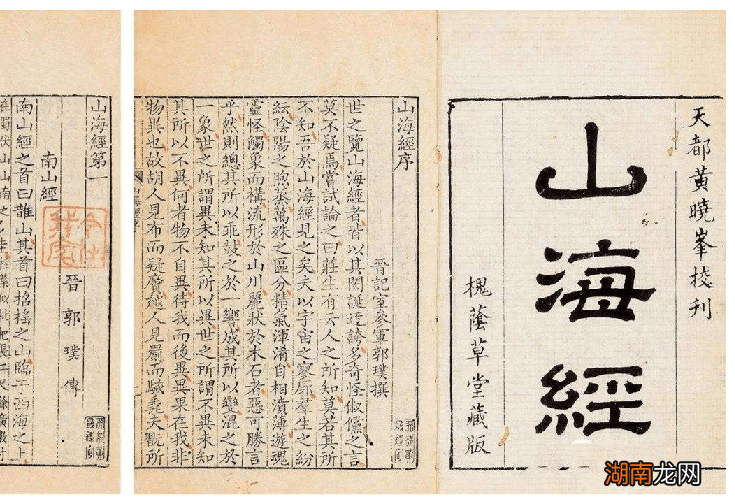 天都黄曉峯挍刊
山海經
槐蔭草堂藏版
山海經序
晉記室參軍郭璞撰
世之覽山海經者皆以其閎誕迂誇多奇怪俶儻之言
莫不疑焉嘗試論之曰莊生有云人之所知莫若其所
不知吾於山海經見之矣夫以宇宙之寥廓羣生之紛
紜陰陽之煦蒸萬殊之區分精氣渾淆自相濆薄遊魂
靈怪觸象而構流形於山川麗狀於木石者惡可勝言
乎然則總其所以乖鼓之於一響成其所以變混之於
一象世之所謂異未知其所以異世之所謂不異未知
其所以不異何者物不自異待我而後異異果在我非
物異也故胡人見布而疑黂越人見罽而駭毳夫翫所
山海經第一
南山經
晉郭璞傳
南山經之首曰䧿山其首曰招搖之山臨于西海之上
湖南龙网